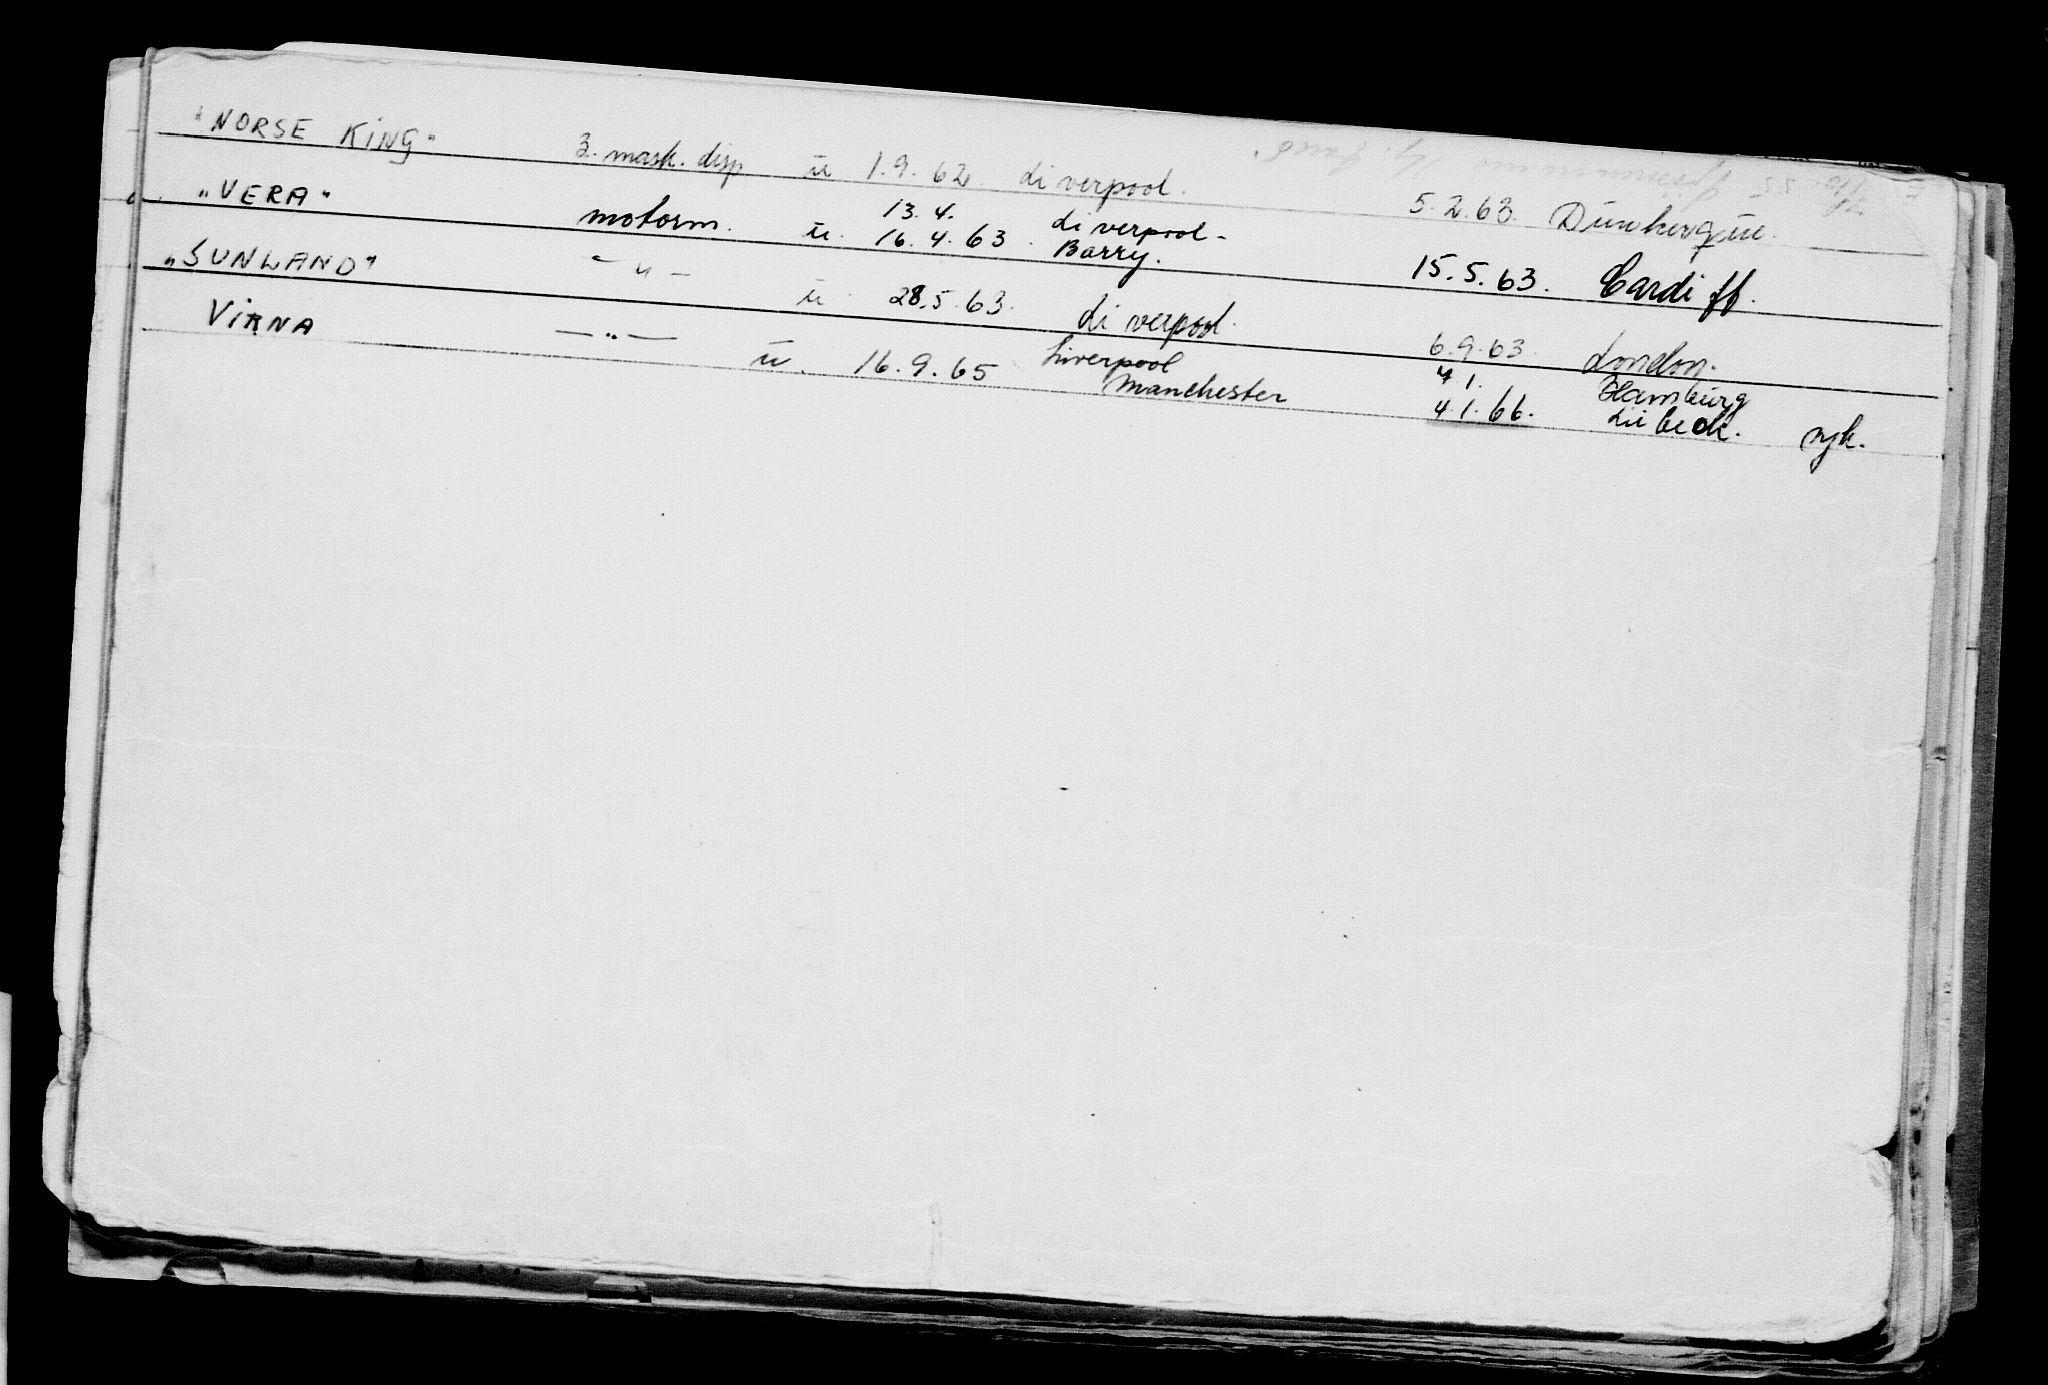 "NORSE KING" 3. mask. disp. u 1.9.62. Liverpool. 5.2.63. Dunkerque.
"VERA" motorm. u. 13.4. Liverpool-
16.4.63. Barry. 15.5.63. Cardiff.
"SUNLAND" -"- u. 28.5.63. Liverpool. 6.9.63. London.
VIRNA -"- u. 16.9.65 Liverpool 4.1. Hamburg
Manchester 4.1.66. Lübeck. syk.